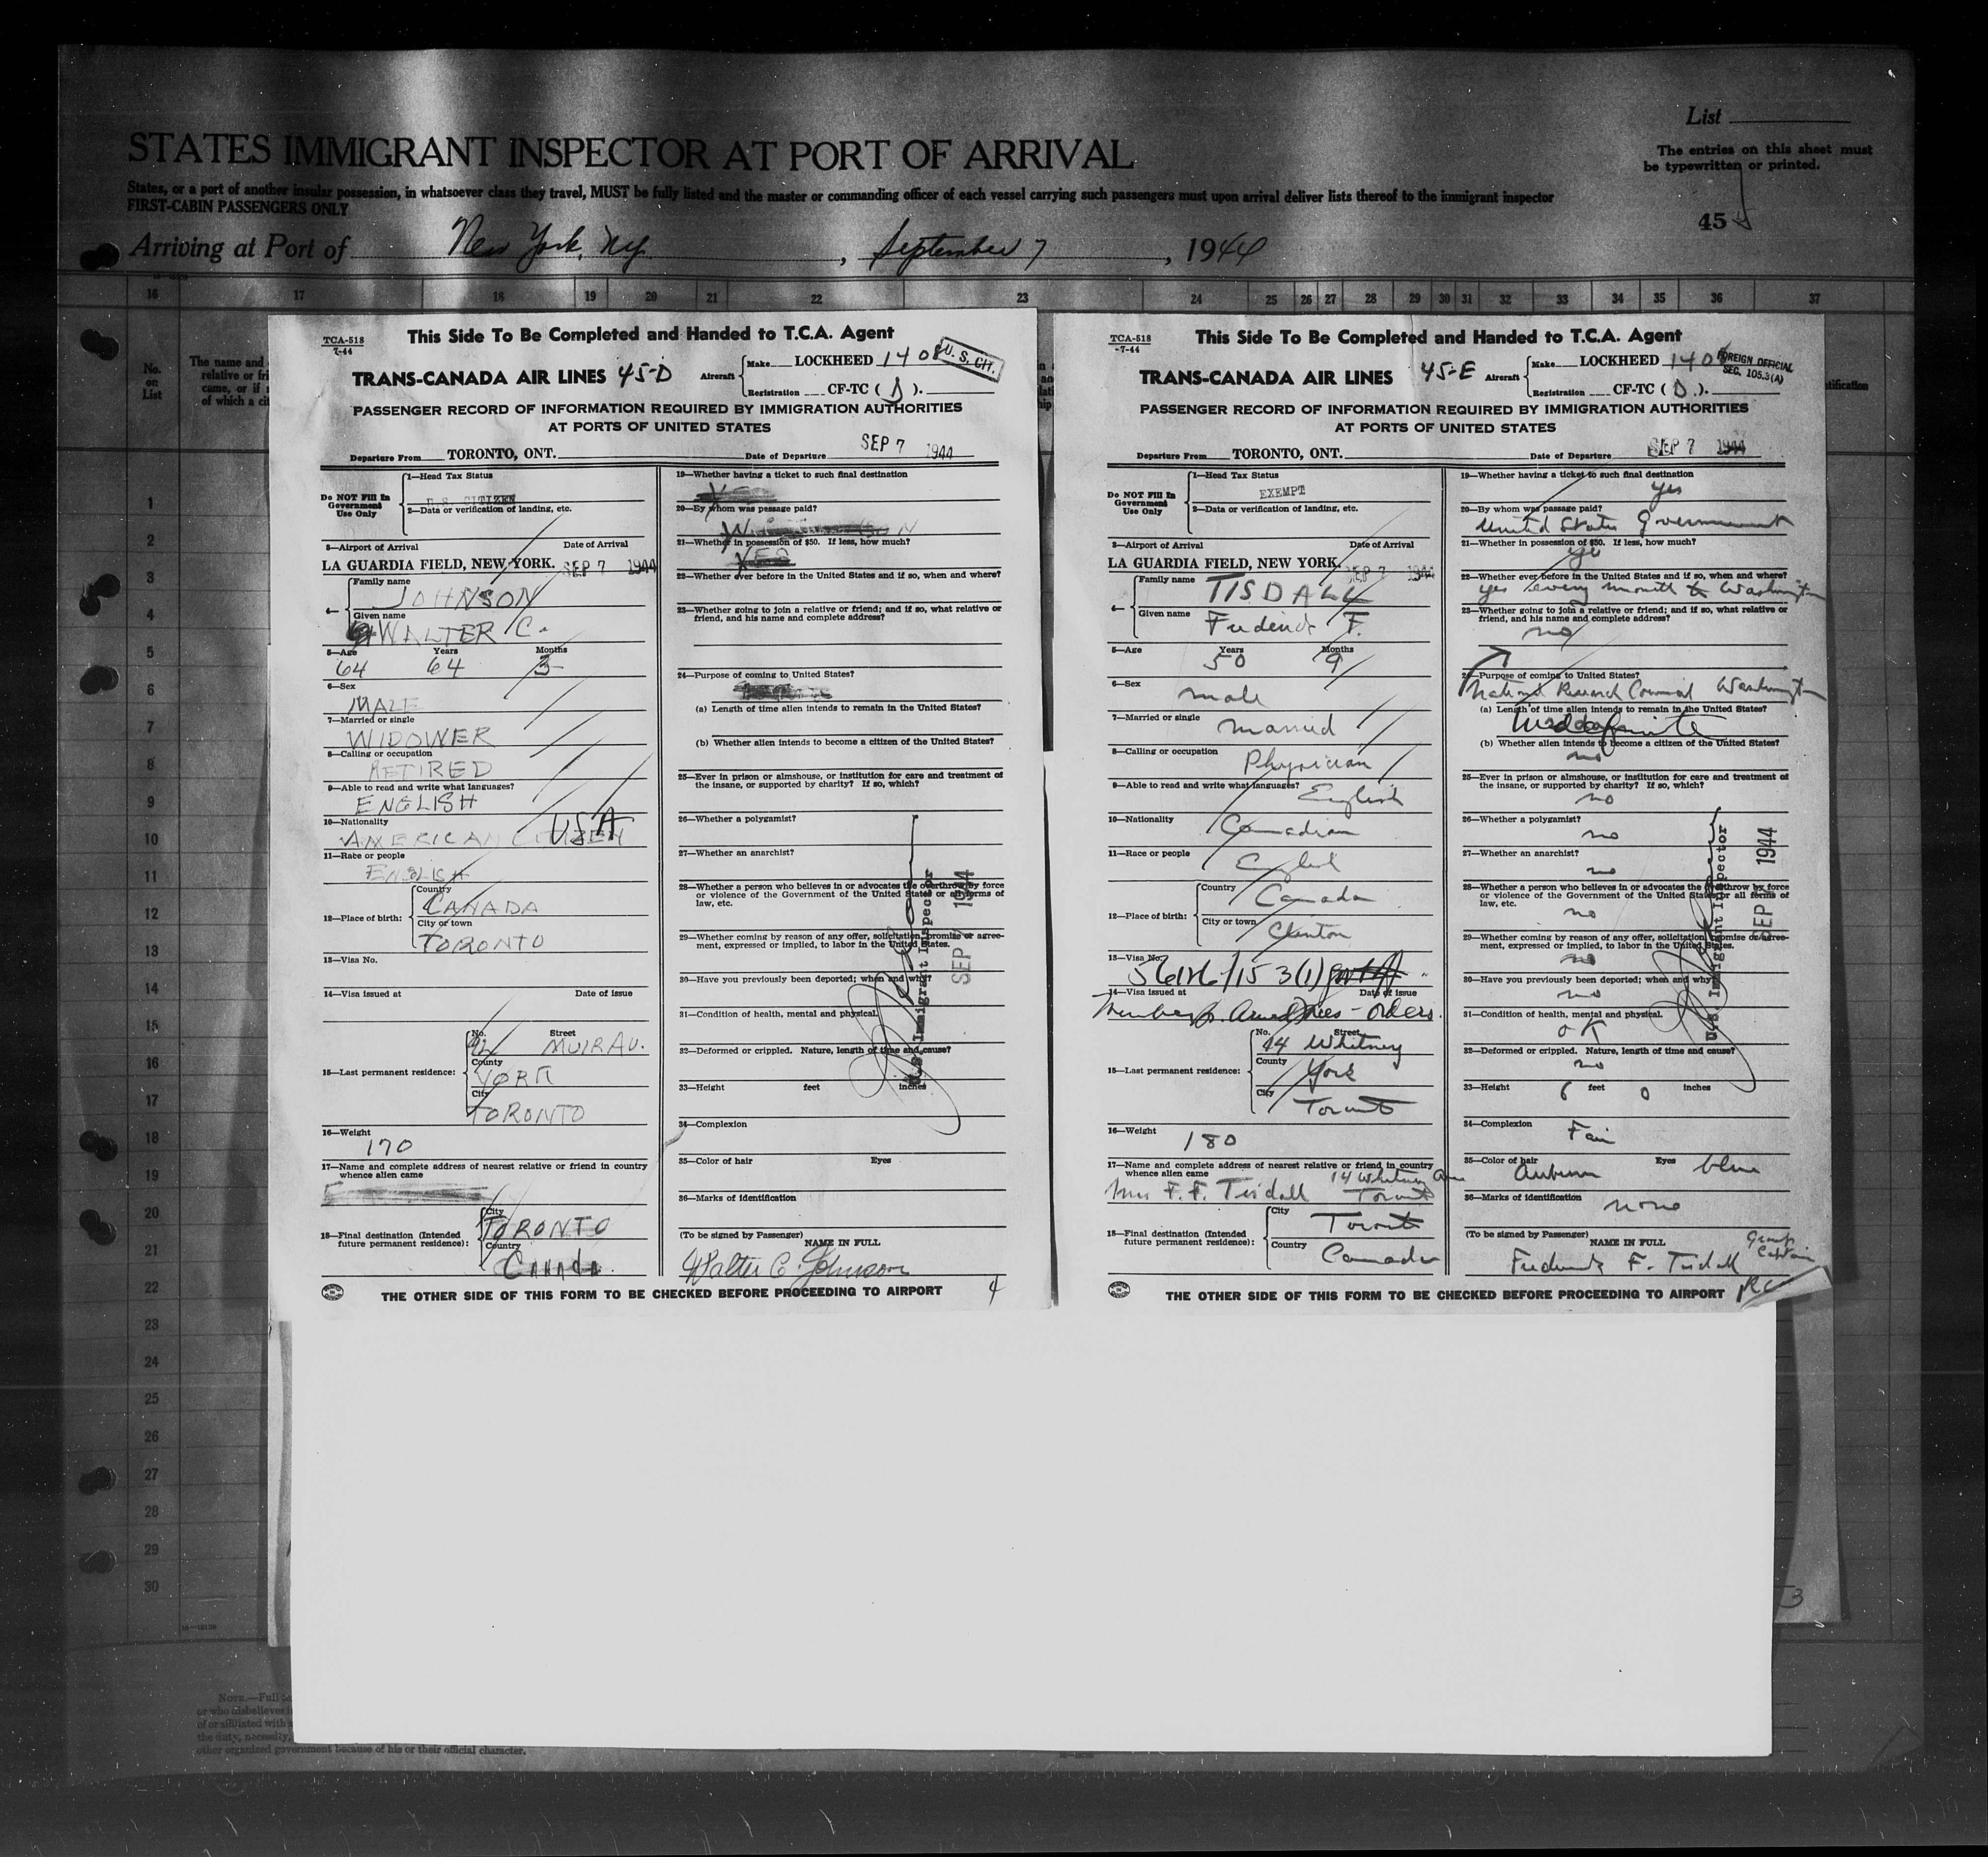 List
STATES IMMIGRANT INSPECTOR AT PORT OF ARRIVAL
The entries on this sheet must
be typewritten or printed.
States, or a port of another insular possession, in whatsoever class they travel, MUST be fully listed and the master or commanding officer of each vessel carrying such passengers must upon arrival deliver lists thereof to the immigrant inspector
FIRST-CABIN PASSENGERS ONLY
45
Arriving at Port of New York, NY. , September 7 , 1944
16 17 18 19 20 21 22 23 24 25 26 27 28 29 30 31 32 33 34 35 36 37
No.
on
List
The name and
relative or fri
came, or if
of which a cit
This Side To Be Completed and Handed to T.C.A. Agent
TCA-518
7-44
TRANS-CANADA AIR LINES 45-D
Aircraft Make LOCKHEED 1408
U. S. CIT.
Registration CF-TC ( D ).
PASSENGER RECORD OF INFORMATION REQUIRED BY IMMIGRATION AUTHORITIES
AT PORTS OF UNITED STATES
Departure From TORONTO, ONT. Date of Departure SEP 7 1944
Do NOT Fill In
Government
Use Only
1—Head Tax Status
U.S. CITIZEN
2—Data or verification of landing, etc.
3—Airport of Arrival Date of Arrival
LA GUARDIA FIELD, NEW YORK. SEP 7 1944
4— Family name
JOHNSON
Given name
WALTER C.
5—Age Years Months
64 64 3
6—Sex
MALE
7—Married or single
WIDOWER
8—Calling or occupation
RETIRED
9—Able to read and write what languages?
ENGLISH
10—Nationality USA
AMERICAN CITIZEN
11—Race or people
ENGLISH
12—Place of birth: Country
CANADA
City or town
TORONTO
13—Visa No.
14—Visa issued at Date of issue
15—Last permanent residence: No. Street
92 MUIR AV.
County
YORK
City
TORONTO
16—Weight
170
17—Name and complete address of nearest relative or friend in country
whence alien came
18—Final destination (Intended
future permanent residence): City
TORONTO
Country
Canada
19—Whether having a ticket to such final destination
20—By whom was passage paid?
21—Whether in possession of $50. If less, how much?
YES
22—Whether ever before in the United States and if so, when and where?
23—Whether going to join a relative or friend; and if so, what relative or
friend, and his name and complete address?
24—Purpose of coming to United States?
(a) Length of time alien intends to remain in the United States?
(b) Whether alien intends to become a citizen of the United States?
25—Ever in prison or almshouse, or institution for care and treatment of
the insane, or supported by charity? If so, which?
26—Whether a polygamist?
27—Whether an anarchist?
28—Whether a person who believes in or advocates the overthrow by force
or violence of the Government of the United States or all forms of
law, etc.
29—Whether coming by reason of any offer, solicitation, promise or agree-
ment, expressed or implied, to labor in the United States.
30—Have you previously been deported; when and why?
31—Condition of health, mental and physical.
32—Deformed or crippled. Nature, length of time and cause?
33—Height feet inches
34—Complexion
35—Color of hair Eyes
36—Marks of identification
U.S. Immigrant Inspector
SEP 7 1944
(To be signed by Passenger)
NAME IN FULL
Walter C. Johnson
THE OTHER SIDE OF THIS FORM TO BE CHECKED BEFORE PROCEEDING TO AIRPORT
4
This Side To Be Completed and Handed to T.C.A. Agent
TCA-518
-7-44
TRANS-CANADA AIR LINES 45-E
Aircraft Make LOCKHEED 1408
FOREIGN OFFICIAL
SEC. 105.3(A)
Registration CF-TC ( D ).
PASSENGER RECORD OF INFORMATION REQUIRED BY IMMIGRATION AUTHORITIES
AT PORTS OF UNITED STATES
Departure From TORONTO, ONT. Date of Departure SEP 7 1944
Do NOT Fill In
Government
Use Only
1—Head Tax Status
EXEMPT
2—Data or verification of landing, etc.
3—Airport of Arrival Date of Arrival
LA GUARDIA FIELD, NEW YORK. SEP 7 1944
4— Family name
TISDALL
Given name
Frederick F.
5—Age Years Months
50 9
6—Sex
male
7—Married or single
married
8—Calling or occupation
Physician
9—Able to read and write what languages?
English
10—Nationality
Canadian
11—Race or people
English
12—Place of birth: Country
Canada
City or town
Clinton
13—Visa No.
14—Visa issued at Date of issue
Member Armed Forces - Orders.
15—Last permanent residence: No. Street
14 Whitney
County
York
City
Toronto
16—Weight
180
17—Name and complete address of nearest relative or friend in country
whence alien came
Mrs F. F. Tisdall 14 Whitney Ave
Toronto
18—Final destination (Intended
future permanent residence): City
Toronto
Country
Canada
19—Whether having a ticket to such final destination
yes
20—By whom was passage paid?
United States Government
21—Whether in possession of $50. If less, how much?
yes
22—Whether ever before in the United States and if so, when and where?
yes every month to Washington
23—Whether going to join a relative or friend; and if so, what relative or
friend, and his name and complete address?
no
24—Purpose of coming to United States?
National Research Council Washington
(a) Length of time alien intends to remain in the United States?
Indefinite
(b) Whether alien intends to become a citizen of the United States?
no
25—Ever in prison or almshouse, or institution for care and treatment of
the insane, or supported by charity? If so, which?
no
26—Whether a polygamist?
no
27—Whether an anarchist?
no
28—Whether a person who believes in or advocates the overthrow by force
or violence of the Government of the United States or all forms of
law, etc.
no
29—Whether coming by reason of any offer, solicitation, promise or agree-
ment, expressed or implied, to labor in the United States.
no
30—Have you previously been deported; when and why?
no
31—Condition of health, mental and physical.
OK
32—Deformed or crippled. Nature, length of time and cause?
no
33—Height 6 feet 0 inches
34—Complexion
Fair
35—Color of hair Eyes
Auburn blue
36—Marks of identification
none
U.S. Immigrant Inspector
SEP 7 1944
(To be signed by Passenger)
NAME IN FULL
Group
Captain
Frederick F. Tisdall
THE OTHER SIDE OF THIS FORM TO BE CHECKED BEFORE PROCEEDING TO AIRPORT
tification
1
2
3
4
5
6
7
8
9
10
11
12
13
14
15
16
17
18
19
20
21
22
23
24
25
26
27
28
29
30
3
NOTE.—Full
or who disbelieves
of or affiliated with
the duty, necessity,
other organized government because of his or their official character.